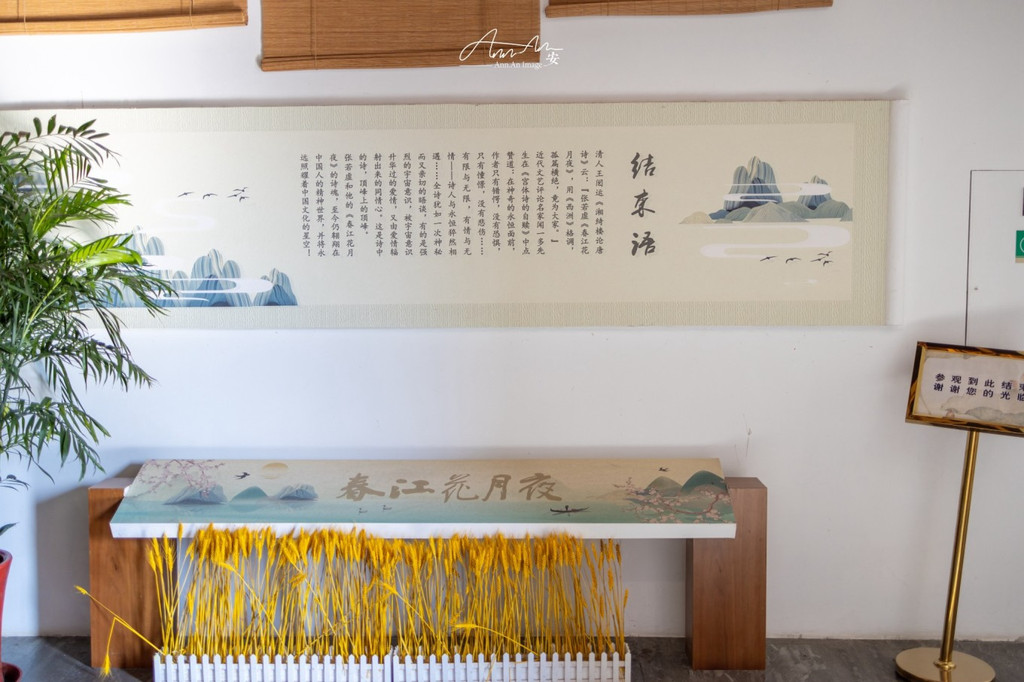 Ann.An
Ann.An Image 安
结束语
清人王闿运《湘绮楼论唐
诗》云:『张若虚《春江花
月夜》,用《西洲》格调,
孤篇横绝,竟为大家。』
近代文艺评论名家闻一多先
生在《宫体诗的自赎》中点
赞道:在神奇的永恒面前,
作者只有错愕,没有恐惧,
只有憧憬,没有悲伤……
有限与无限,有情与无
情——诗人与永恒猝然相
遇……全诗犹如一次神秘
而又亲切的晤谈,有的是强
烈的宇宙意识,被宇宙意识
升华过的爱情,又由爱情辐
射出来的同情心,这是诗中
的诗,顶峰上的顶峰。
张若虚和他的《春江花月
夜》的诗魂,至今仍翱翔在
中国人的精神世界,并将永
远照耀着中国文化的星空!
参观到此结束
谢谢您的光临
春江花月夜